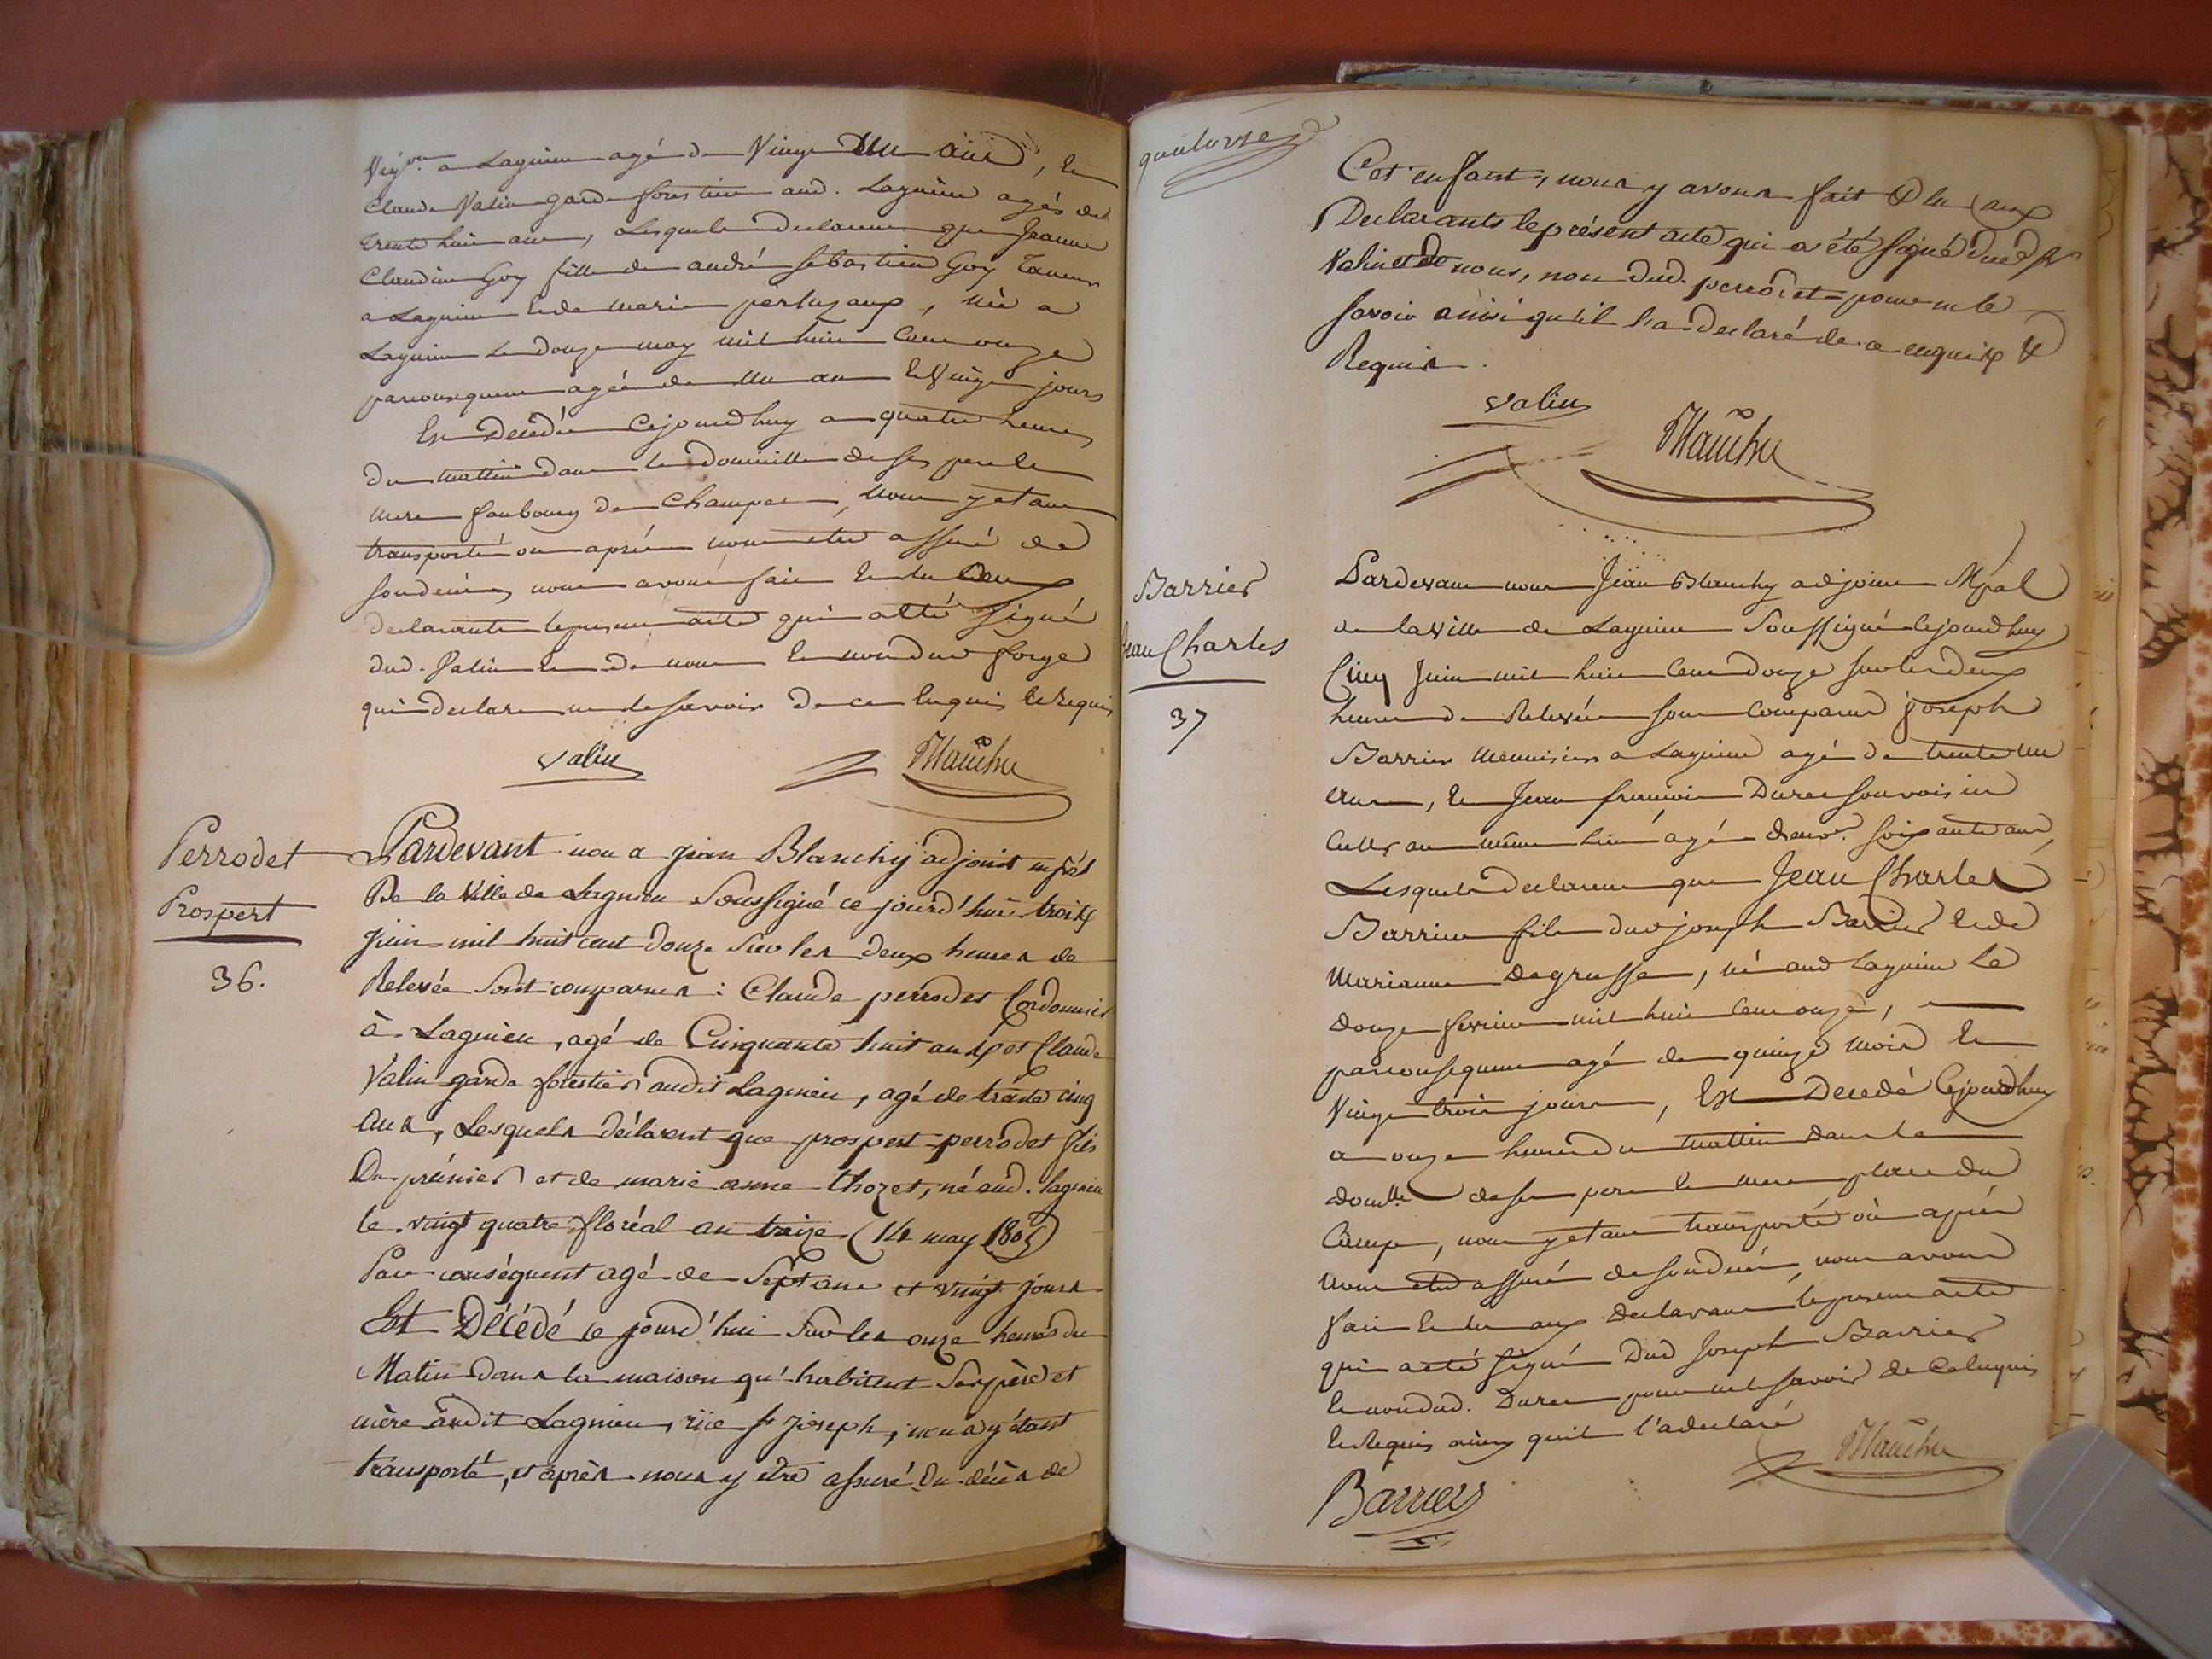 Vig.on a Lagnieu agé de Vingt Un ans, et
Claude Valin garde forestier aud. Lagnieu agés de
trente huit ans, Lesquels declarent que Jeanne
Claudine Goy fille de andré sebastien Goy Taneur
a Lagnieu et de Marie perluzaux, née a
Lagnieu Le douze may mil huit Cent onze
parconsequent agée de Un an et Vingt jours
Est Decedée Cejourdhuy a quatre heures
du mattin dans le Domicille de ses pere et
mere faubourg de Champas, Nous y etant
transporté ou aprés nous etre assuré de
son deces, nous avons fait et lu aux
declarants le present acte qui a eté signé
dud. Valin et de nous et non dud forge
qui declare ne le savoir de ce Enquis et Requis
Valin Blanchy
Perrodet
Prospert
36.
Pardevant nous Jean Blanchy adjoint mp'al
De la Ville de Lagnieu Soussigné ce jourd'hui trois
Juin mil huit cent douze Sur les deux heures de
Relevée Sont comparus : Claude perrodet Cordonnier
à Lagnieu, agé de Cinquante huit ans et Claude
Valin garde forestier audit Lagnieu, agé de trente cinq
ans, Lesquels déclarent que prospert perrodet fils
Du prémier et de marie anne thozet, né aud. lagnieu
le vingt quatre floréal an treize (14 may 1805)
Par conséquent agé de Sept ans et vingt jours
Est Décédé ce jourd'hui Sur les onze heures du
Matin dans la maison qu'habitent Ses père et
mère audit Lagnieu, rüe St Joseph, nous y étant
transporté, et après nous y etre assuré du décès de
quatorze
Cet enfant, nous y avons fait & lu aux
Declarants le présent acte qui a été signé dud Sr
Valin et de nous, non dud. perrodet pour ne le
savoir ainsi qu'il l'a declaré de ce enquis &
Requis.
Valin
Blanchy
Barrier
Jean Charles
37
Pardevant nous Jean Blanchy adjoint M͞pal
de la Ville de Lagnieu Soussigné Cejourdhuy
Cinq Juin mil huit Cent douze sur les deux
heures de Relevée sont Comparus Joseph
Barrier Menuisier a Lagnieu agé de trente un
ans, et Jean francois Duree son voisin
Cult.r au même lieu agé denv.n soixante ans,
Lesquels declarent que Jean Charles
Barrier fils dud joseph Barrier et de
Marianne Degrusse, né aud Lagnieu Le
Douze fevrier mil huit Cent onze,
parconsequent agé de quinze mois et
Vingt trois jours, Est Decedé Cejourdhuy
a onze heures du mattin dans le
Domlle de ses pere et mere place du
Camp, nous y etant transporté où après
nous etre assuré de son deces, nous avons
fait et lu aux declarans le present acte
qui a eté signé Dud Joseph Barrier
et non dud. Duree pour ne le savoir de Ce Enquis
et Requis ainsy quil l'a declaré
Blanchy
Barrier